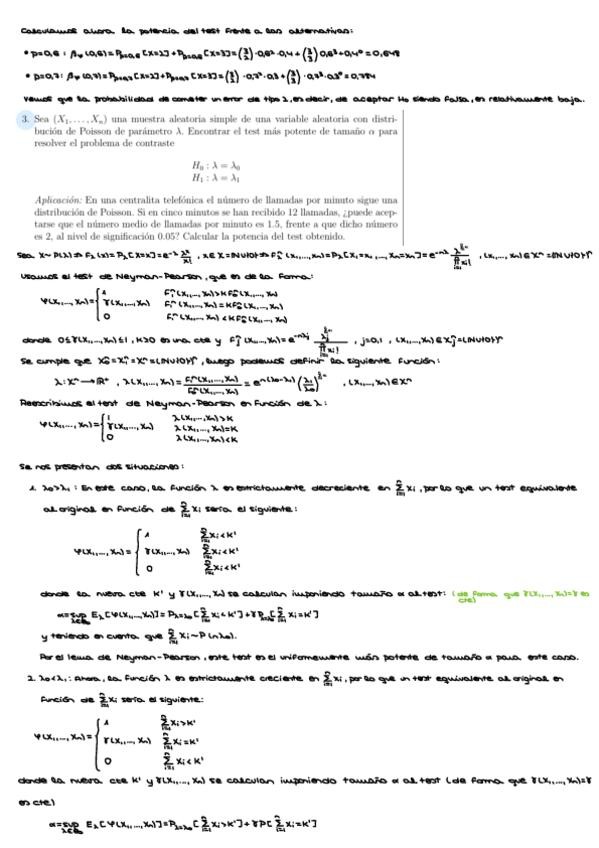 Calculamos ahora la potencia del test frente a las alternativas:
• p=0,6 : βφ(0,6)=Pp=0,6[X=2]+Pp=0,6[X=3]=(3 2)·0,6²·0,4+(3 3)0,6³·0,4⁰=0,648
• p=0,7 : βφ(0,7)=Pp=0,7[X=2]+Pp=0,7[X=3]=(3 2)·0,7²·0,3+(3 3)·0,7³·0,3⁰=0,784
Vemos que la probabilidad de cometer un error de tipo 2, es decir, de aceptar H₀ siendo falsa, es relativamente baja.
3. Sea (X₁, . . . , Xₙ) una muestra aleatoria simple de una variable aleatoria con distri-
bución de Poisson de parámetro λ. Encontrar el test más potente de tamaño α para
resolver el problema de contraste
H₀ : λ = λ₀
H₁ : λ = λ₁
Aplicación: En una centralita telefónica el número de llamadas por minuto sigue una
distribución de Poisson. Si en cinco minutos se han recibido 12 llamadas, ¿puede acep-
tarse que el número medio de llamadas por minuto es 1.5, frente a que dicho número
es 2, al nivel de significación 0.05? Calcular la potencia del test obtenido.
Sea X~P(λ)
Usamos el test de Neyman-Pearson, que es de la forma:
donde 0≤γ(X₁,...,Xₙ)≤1, K≥0 es una cte y
, j=0,1 ,
luego podemos definir la siguiente función:
Reescribimos el test de Neyman-Pearson en función de λ:
φ(X₁,...,Xₙ)= { 1 λ(X₁,...,Xₙ)>K
γ(X₁,...,Xₙ) λ(X₁,...,Xₙ)=K
0 λ(X₁,...,Xₙ)<K
Se nos presentan dos situaciones:
1. λ₀>λ₁ : En este caso, la función λ es estrictamente decreciente en Σxi, por lo que un test equivalente
al original en función de Σxi sería el siguiente:
φ(X₁,...,Xₙ)= { 1 Σxi<K'
γ(X₁,...,Xₙ) Σxi<K'
0 Σxi<K'
donde la nueva cte K' y γ(X₁,...,Xₙ) se calculan imponiendo tamaño α al test: (de forma que γ(X₁,...,Xₙ)=γ es
cte)
y teniendo en cuenta que ΣXi~P(nλ₀).
Por el lema de Neyman-Pearson, este test es el uniformemente más potente de tamaño α para este caso.
2. λ₀<λ₁ : Ahora, la función λ es estrictamente creciente en Σxi, por lo que un test equivalente al original en
función de Σxi sería el siguiente:
φ(X₁,...,Xₙ)= { 1 Σxi>K'
γ(X₁,...,Xₙ) Σxi=K'
0 Σxi<K'
donde la nueva cte K' y γ(X₁,...,Xₙ) se calculan imponiendo tamaño α al test (de forma que γ(X₁,...,Xₙ)=γ
es cte)